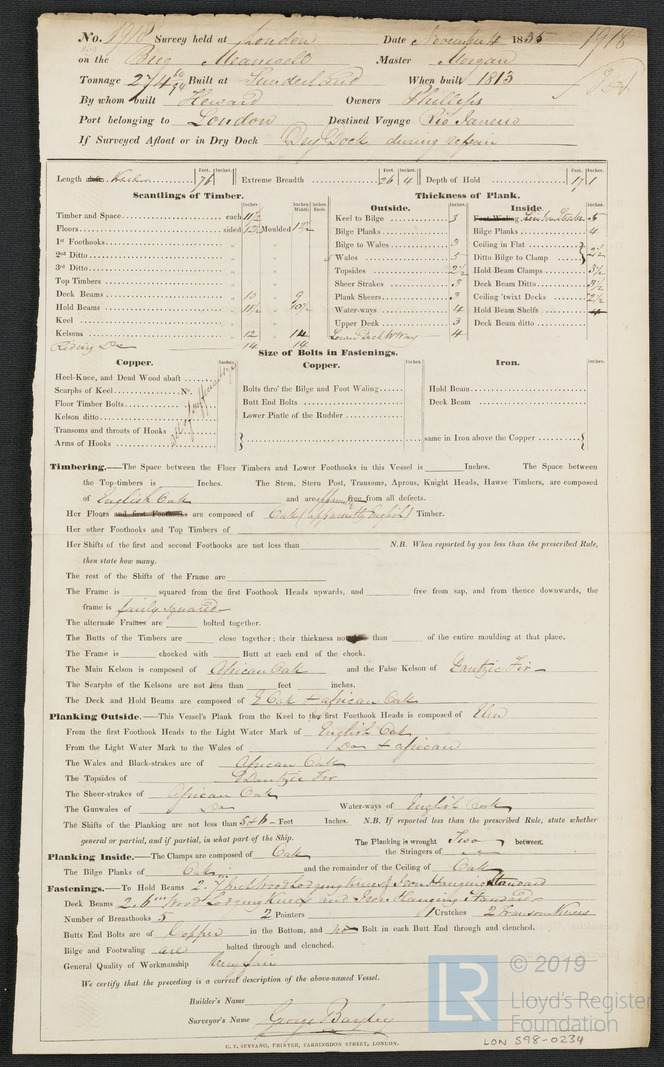 No. 1918 Survey held at London Date November 4 1835 1918
on the Brig Master Morgan
Tonnage 274 Built at Sunderland When built 1813
By whom built Howard Owners Phillips
Port belonging to London Destined Voyage Rio Janeiro
If Surveyed Afloat or in Dry Dock Dry Dock during repair
Length Keelson Feet. 76 Inches. Extreme Breadth Feet. 26 Inches. 4 Depth of Hold Feet. 17 Inches. 1
Scantlings of Timber.
Inches. Inches. Middle Inches. Ends
Timber and Space each 11½
Floors sided 12½ Moulded 12
1st Foothooks
2nd Ditto
3rd Ditto
Top Timbers
Deck Beams 10 9
Hold Beams 11½ 10½
Keel
Kelsons 12 14
14 14
Thickness of Plank.
Outside. Inches.
Keel to Bilge 3
Bilge Planks
Bilge to Wales 3
Wales 5
Topsides 2½
Sheer Strakes 3
Plank Sheers 3
Water-ways 4
Upper Deck 3
Lower Deck W Way 4
Inside. Inches.
Foot Waling Limber Strakes 5
Bilge Planks 4
Ceiling in Flat } 2½
Ditto Bilge to Clamp
Hold Beam Clamps 3½
Deck Beam Ditto 3½
Ceiling 'twixt Decks 2½
Hold Beam Shelfs 4
Deck Beam ditto
Size of Bolts in Fastenings.
Copper. Inches.
Heel-Knee, and Dead Wood abaft
Scarphs of Keel No.
Floor Timber Bolts
Kelson ditto
Transoms and throats of Hooks
Arms of Hooks
all of sufficient size
Copper. Inches.
Bolts thro' the Bilge and Foot Waling
Butt End Bolts
Lower Pintle of the Rudder
Iron. Inches.
Hold Beam
Deck Beam
{ same in Iron above the Copper }
Timbering.—The Space between the Floor Timbers and Lower Foothooks in this Vessel is Inches. The Space between
the Top-timbers is Inches. The Stem, Stern Post, Transoms, Aprons, Knight Heads, Hawse Timbers, are composed
of English Oak and are apparently free from all defects.
Her Floors and first Foothooks are composed of Oak (apparently English) Timber.
Her other Foothooks and Top Timbers of
Her Shifts of the first and second Foothooks are not less than N.B. When reported by you less than the prescribed Rule,
then state how many.
The rest of the Shifts of the Frame are
The Frame is squared from the first Foothook Heads upwards, and free from sap, and from thence downwards, the
frame is fairly squared
The alternate Frames are bolted together.
The Butts of the Timbers are close together; their thickness not than of the entire moulding at that place.
The Frame is chocked with Butt at each end of the chock.
The Main Kelson is composed of African Oak and the False Kelson of Dantzic Fir
The Scarphs of the Kelsons are not less than feet inches.
The Deck and Hold Beams are composed of E Oak + African Oak
Planking Outside.—This Vessel's Plank from the Keel to the first Foothook Heads is composed of Elm
From the first Foothook Heads to the Light Water Mark of English Oak
From the Light Water Mark to the Wales of Do + African
The Wales and Black-strakes are of African Oak
The Topsides of Dantzic Fir
The Sheer-strakes of African Oak
The Gunwales of Do Water-ways of English Oak
The Shifts of the Planking are not less than 5 & 6 Feet Inches. N.B. If reported less than the prescribed Rule, state whether
general or partial, and if partial, in what part of the Ship. The Planking is wrought Two between.
Planking Inside.—The Clamps are composed of Oak the Stringers of
The Bilge Planks of Oak and the remainder of the Ceiling of Oak
Fastenings.—To Hold Beams 2. Wood Lodging Knees & Iron Hanging Standard
Deck Beams 2. Wood Lodging Knees and Iron Hanging Standards
Number of Breasthooks 5 2 Pointers 1 Crutches 2 Transom Knees
Butts End Bolts are of Copper in the Bottom, and no Bolt in each Butt End through and clenched.
Bilge and Footwaling are bolted through and clenched.
General Quality of Workmanship Very fair
We certify that the preceding is a correct description of the above-named Vessel.
Builder's Name
Surveyor's Name George Bayley
C. F. SEYFANG, PRINTER, FARRINGDON STREET, LONDON.
LR © 2019
Lloyd's Register
Foundation
LON 598-0234